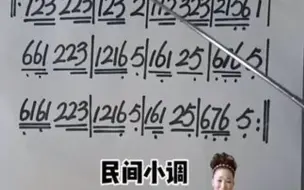 ‖: 123 223 | 123 2 | 112323 | 21561 |
661 223 | 1216 5 | 161 25 | 6165 |
6161 223 | 1216 5 | 161 25 | 676 5 :‖
民间小调